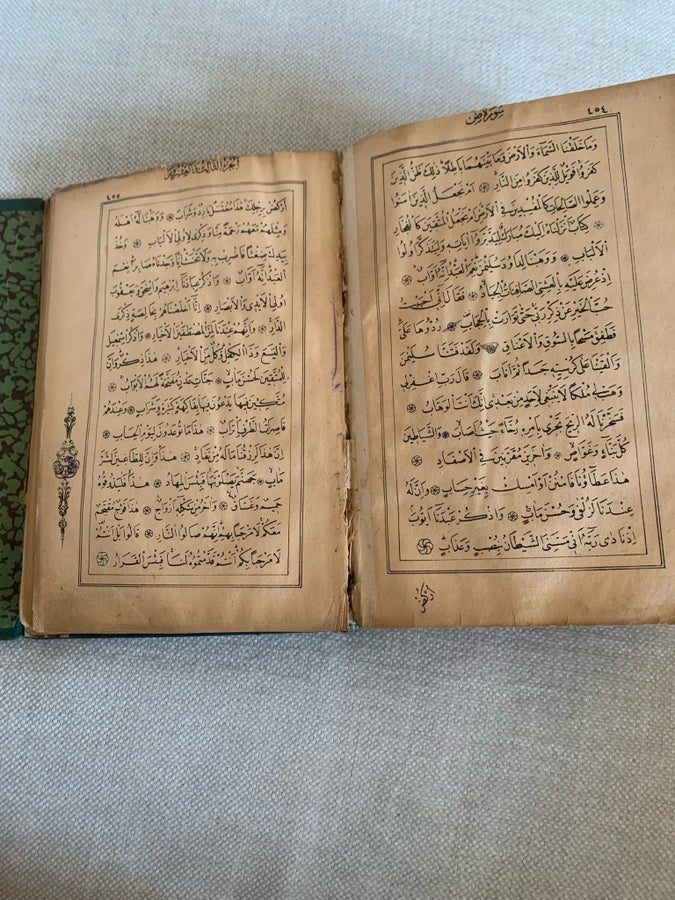 ٤٥٤
سورة ص
وَمَا خَلَقْنَا السَّمَاءَ وَالْاَرْضَ وَمَا بَيْنَهُمَا بَاطِلًا ذٰلِكَ ظَنُّ الَّذِينَ
كَفَرُوا فَوَيْلٌ لِلَّذِينَ كَفَرُوا مِنَ النَّارِ ۞ اَمْ نَجْعَلُ الَّذِينَ اٰمَنُوا
وَعَمِلُوا الصَّالِحَاتِ كَالْمُفْسِدِينَ فِي الْاَرْضِ اَمْ نَجْعَلُ الْمُتَّقِينَ كَالْفُجَّارِ
۞ كِتَابٌ اَنْزَلْنَاهُ اِلَيْكَ مُبَارَكٌ لِيَدَّبَّرُوا اٰيَاتِهِ وَلِيَتَذَكَّرَ اُولُوا
الْاَلْبَابِ ۞ وَوَهَبْنَا لِدَاوُدَ سُلَيْمٰنَ نِعْمَ الْعَبْدُ اِنَّهُ اَوَّابٌ ۞
اِذْ عُرِضَ عَلَيْهِ بِالْعَشِيِّ الصَّافِنَاتُ الْجِيَادُ ۞ فَقَالَ اِنّٖي اَحْبَبْتُ
حُبَّ الْخَيْرِ عَنْ ذِكْرِ رَبّٖي حَتّٰى تَوَارَتْ بِالْحِجَابِ ۞ رُدُّوهَا عَلَيَّ
فَطَفِقَ مَسْحًا بِالسُّوقِ وَالْاَعْنَاقِ ۞ وَلَقَدْ فَتَنَّا سُلَيْمٰنَ
وَاَلْقَيْنَا عَلٰى كُرْسِيِّهِ جَسَدًا ثُمَّ اَنَابَ ۞ قَالَ رَبِّ اغْفِرْ لٖي
وَهَبْ لٖي مُلْكًا لَا يَنْبَغٖي لِاَحَدٍ مِنْ بَعْدٖي اِنَّكَ اَنْتَ الْوَهَّابُ ۞
فَسَخَّرْنَا لَهُ الرّٖيحَ تَجْرٖي بِاَمْرِهِ رُخَاءً حَيْثُ اَصَابَ ۞ وَالشَّيَاطِينَ
كُلَّ بَنَّاءٍ وَغَوَّاصٍ ۞ وَاٰخَرِينَ مُقَرَّنِينَ فِي الْاَصْفَادِ ۞
هٰذَا عَطَاؤُنَا فَامْنُنْ اَوْ اَمْسِكْ بِغَيْرِ حِسَابٍ ۞ وَاِنَّ لَهُ
عِنْدَنَا لَزُلْفٰى وَحُسْنَ مَاٰبٍ ۞ وَاذْكُرْ عَبْدَنَا اَيُّوبَ
اِذْ نَادٰى رَبَّهُ اَنّٖي مَسَّنِيَ الشَّيْطَانُ بِنُصْبٍ وَعَذَابٍ ۞
اركض
الجزء الثالث والعشرون
٤٥٥
اُرْكُضْ بِرِجْلِكَ هٰذَا مُغْتَسَلٌ بَارِدٌ وَشَرَابٌ ۞ وَوَهَبْنَا لَهُ اَهْلَهُ
وَمِثْلَهُمْ مَعَهُمْ رَحْمَةً مِنَّا وَذِكْرٰى لِاُولِي الْاَلْبَابِ ۞ وَخُذْ
بِيَدِكَ ضِغْثًا فَاضْرِبْ بِهِ وَلَا تَحْنَثْ اِنَّا وَجَدْنَاهُ صَابِرًا نِعْمَ
الْعَبْدُ اِنَّهُ اَوَّابٌ ۞ وَاذْكُرْ عِبَادَنَا اِبْرٰهِيمَ وَاِسْحٰقَ وَيَعْقُوبَ
اُولِي الْاَيْدٖي وَالْاَبْصَارِ ۞ اِنَّا اَخْلَصْنَاهُمْ بِخَالِصَةٍ ذِكْرَى
الدَّارِ ۞ وَاِنَّهُمْ عِنْدَنَا لَمِنَ الْمُصْطَفَيْنَ الْاَخْيَارِ ۞ وَاذْكُرْ اِسْمٰعِيلَ
وَالْيَسَعَ وَذَا الْكِفْلِ وَكُلٌّ مِنَ الْاَخْيَارِ ۞ هٰذَا ذِكْرٌ وَاِنَّ
لِلْمُتَّقِينَ لَحُسْنَ مَاٰبٍ ۞ جَنَّاتِ عَدْنٍ مُفَتَّحَةً لَهُمُ الْاَبْوَابُ ۞
مُتَّكِئِينَ فِيهَا يَدْعُونَ فِيهَا بِفَاكِهَةٍ كَثِيرَةٍ وَشَرَابٍ ۞ وَعِنْدَهُمْ
قَاصِرَاتُ الطَّرْفِ اَتْرَابٌ ۞ هٰذَا مَا تُوعَدُونَ لِيَوْمِ الْحِسَابِ ۞
اِنَّ هٰذَا لَرِزْقُنَا مَا لَهُ مِنْ نَفَادٍ ۞ هٰذَا وَاِنَّ لِلطَّاغِينَ لَشَرَّ
مَاٰبٍ ۞ جَهَنَّمَ يَصْلَوْنَهَا فَبِئْسَ الْمِهَادُ ۞ هٰذَا فَلْيَذُوقُوهُ
حَمِيمٌ وَغَسَّاقٌ ۞ وَاٰخَرُ مِنْ شَكْلِهِ اَزْوَاجٌ ۞ هٰذَا فَوْجٌ مُقْتَحِمٌ
مَعَكُمْ لَا مَرْحَبًا بِهِمْ اِنَّهُمْ صَالُوا النَّارِ ۞ قَالُوا بَلْ اَنْتُمْ
لَا مَرْحَبًا بِكُمْ اَنْتُمْ قَدَّمْتُمُوهُ لَنَا فَبِئْسَ الْقَرَارُ ۞